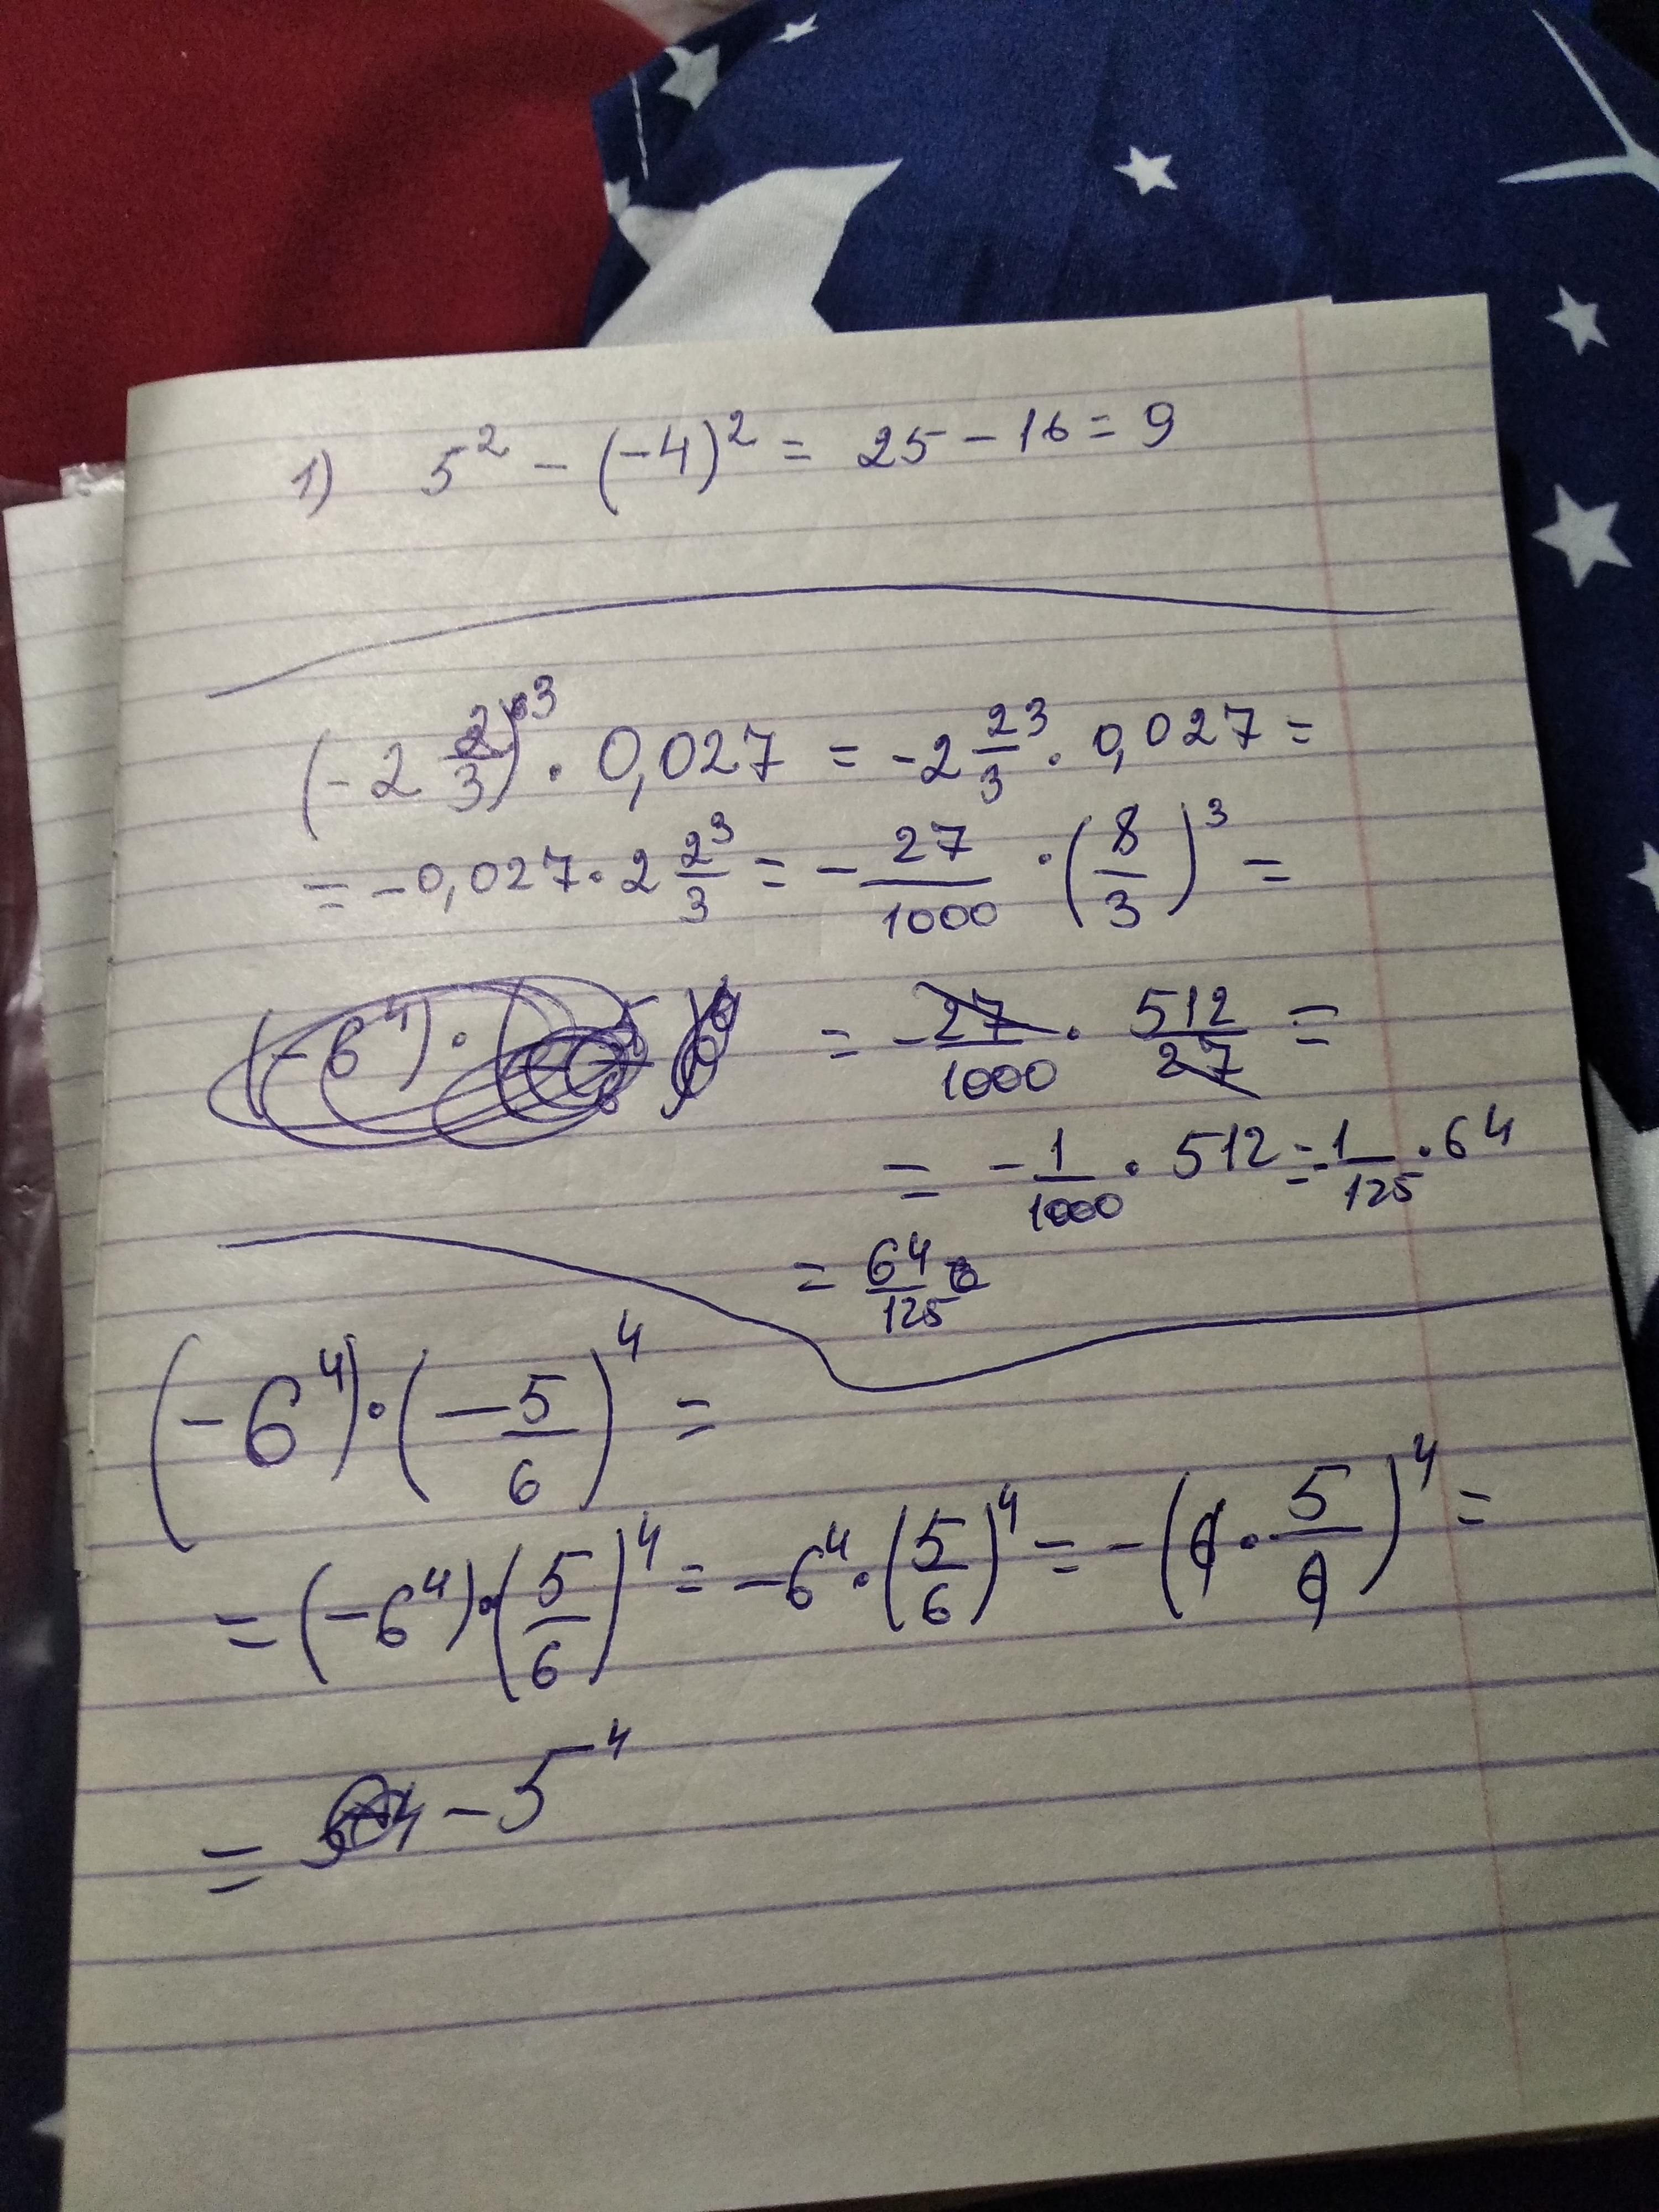 1) 5² - (-4)² = 25 - 16 = 9
(-2 2/3)³ · 0,027 = -2 2/3³ · 0,027 =
= -0,027 · 2 2/3³ = - 27/1000 · (8/3)³ =
= - 27/1000 · 512/27 =
= - 1/1000 · 512 = - 1/125 · 64
= 64/125
(-6⁴) · (-5/6)⁴ =
= (-6⁴) · (5/6)⁴ = -6⁴ · (5/6)⁴ = -(6 · 5/6)⁴ =
= -5⁴